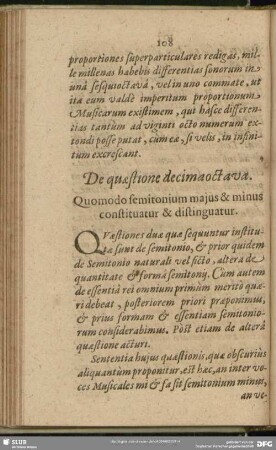 108
proportiones superparticulares redigas, mil-
le millenas habebis differentias sonorum in
unâ sesquioctavâ, vel in uno commate, ut
ita eum valdè imperitum proportionum
Musicarum existimem, qui hasce differen-
tias tantùm ad viginti octo numerum ex-
tendi posse putat, cum eæ, si velis, in infini-
tum excrescant.
De quæstione decimaoctava.
Quomodo semitonium majus & minus
constituatur & distinguatur.
QVæstiones duæ quæ sequuntur institu-
tæ sunt de semitonio, & prior quidem
de Semitonio naturali vel ficto, altera de
quantitate & formâ semitonij. Cum autem
de essentiâ rei omnium primùm meritò quæ-
ri debeat, posteriorem priori præponimus,
& prius formam & essentiam semitonio-
rum considerabimus. Pòst etiam de alterâ
quæstione acturi.
Sententia hujus quæstionis, quæ obscuriùs
aliquantùm proponitur, est hæc, an inter vo-
ces Musicales mi & fa sit semitonium minus,
an ve-
SLUB
DFG